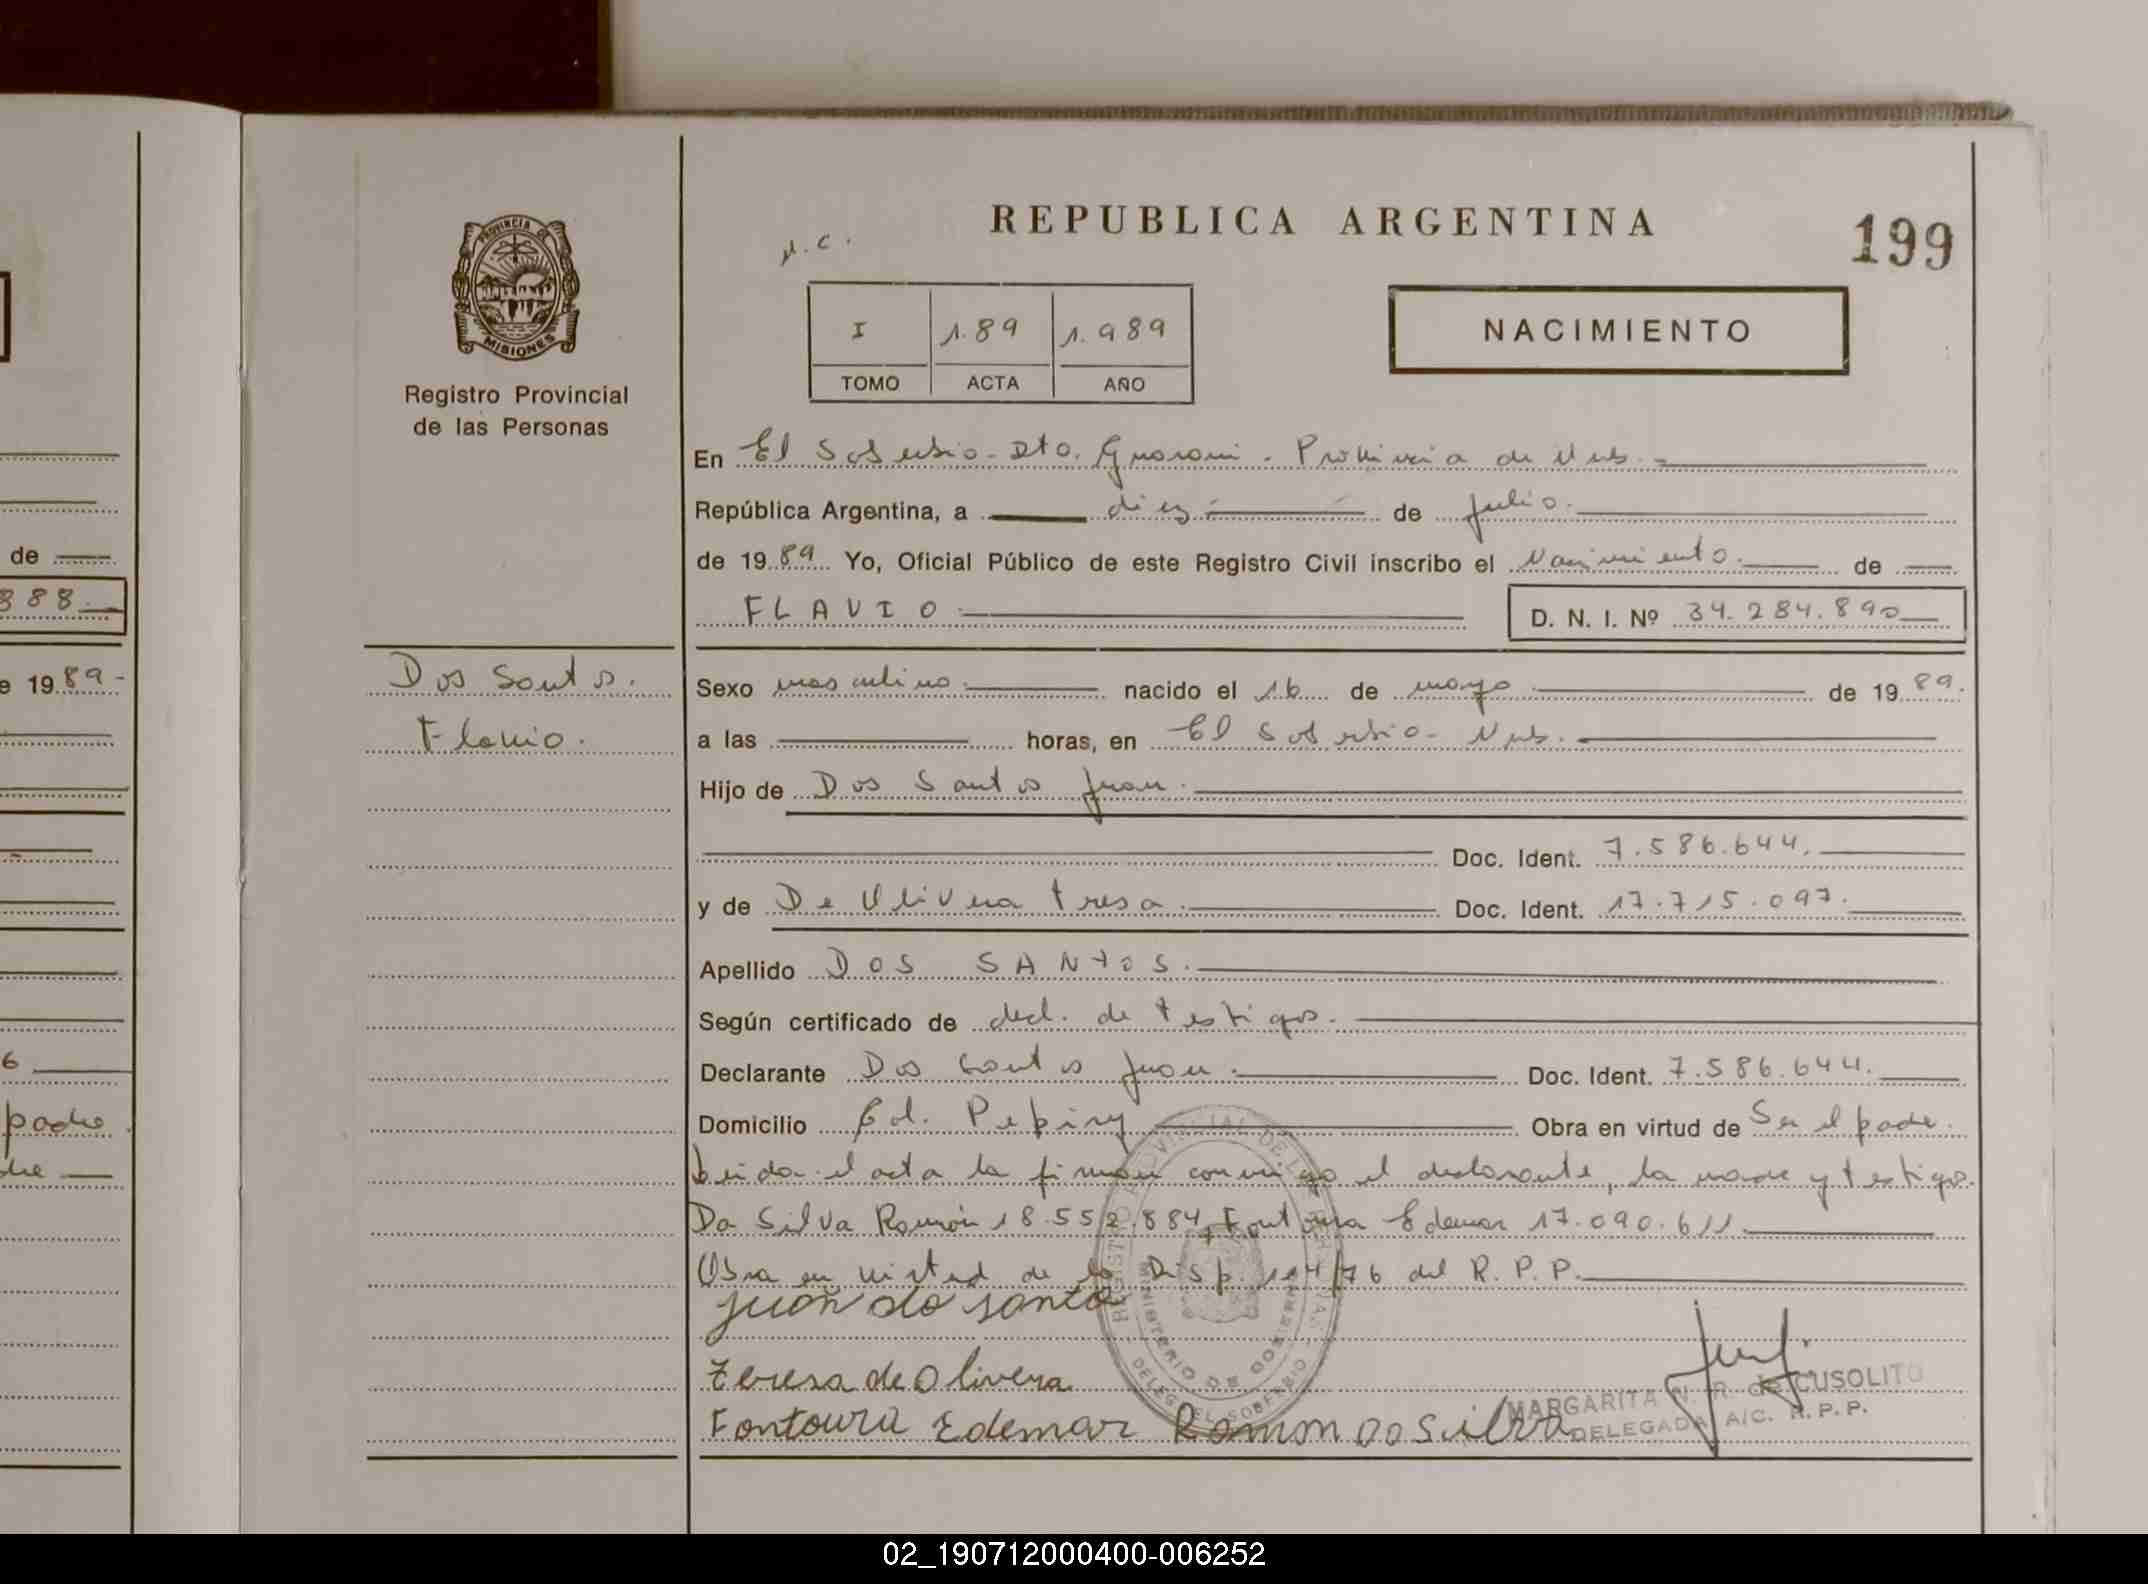 199
REPUBLICA ARGENTINA
PROVINCIA DE
MISIONES
Registro Provincial
de las Personas
I 1.89 1.989
TOMO ACTA AÑO
NACIMIENTO
En El Soberbio - Dto. Guarani - Provincia de Mns.
República Argentina, a diez de Julio.
de 1989 Yo, Oficial Público de este Registro Civil inscribo el Nacimiento. de
FLAVIO D. N. I. Nº 34.284.890
Dos Santos.
Flavio.
Sexo masculino. nacido el 16 de mayo de 1989.
a las horas, en El Soberbio - Mns.
Hijo de Dos Santos Juan.
Doc. Ident. 7.586.644.
y de De Olivera Tresa. Doc. Ident. 17.715.097.
Apellido DOS SANTOS.
Según certificado de decl. de testigos.
Declarante Dos Santos Juan. Doc. Ident. 7.586.644.
Domicilio Col. Pepiry Obra en virtud de Ser el padre.
Leida el acta la firman conmigo el declarante, la madre y testigos.
Da Silva Ramón 18.552.884, Fontoura Edemar 17.090.611.
Obra en virtud de la Disp. 114/76 del R. P. P.
juan do santo
Teresa de Olivera
Fontoura Edemar Ramon da Silva
MARGARITA N. R. de CUSOLITO
DELEGADA A/C. R. P. P.
MINISTERIO DE GOBIERNO
de
388
e 1989-
6
padre.
dre
02_190712000400-006252